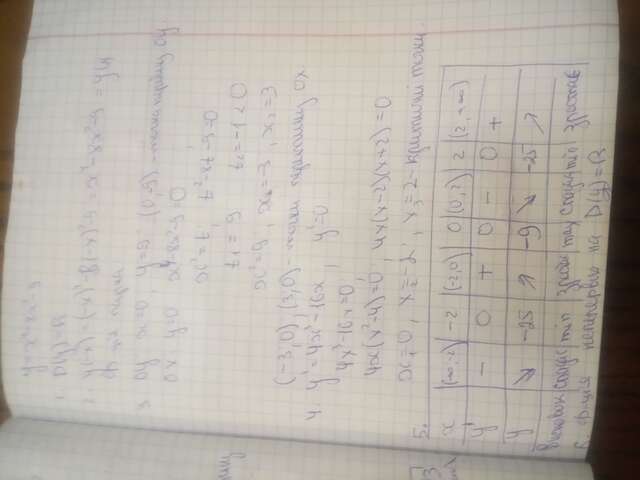 y = x⁴-8x²-9
1. D(y)=R
2. y(-x) = (-x)⁴-8(-x)²-9 = x⁴-8x²-9 = y(x)
ф-ція парна
3. OY x=0, y=-9 (0;-9) - точка перетину OY
OX y=0 x⁴-8x²-9=0
x²=t, t²-8t-9=0
t₁=9 t₂=-1<0
x²=9, x₁=-3, x₂=3
(-3,0), (3,0) - точки перетину OX
4. y'=4x³-16x, y'=0
4x³-16x=0
4x(x²-4)=0, 4x(x-2)(x+2)=0
x₁=0, x₂=-2, x₃=2 - критичні точки
5.
x (-∞;-2) -2 (-2,0) 0 (0;2) 2 (2,+∞)
y' - 0 + 0 - 0 +
y ↘ -25 ↗ -9 ↘ -25 ↗
Висновок спадає min зростає max спадає min зростає
6. Ф-ція неперервна на D(y)=R